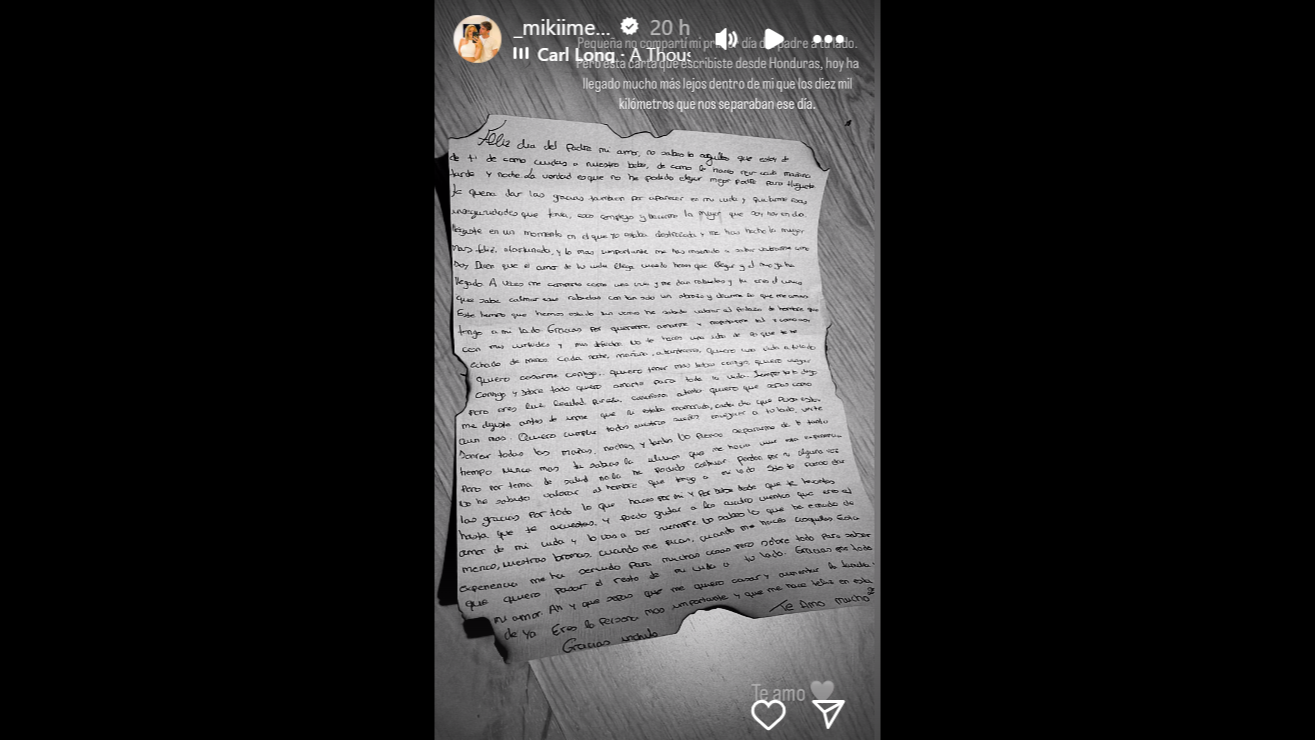 _mikiime... 20 h
Carl Long · A Thous
Pequeña no compartí mi pr r día d padre a tu lado.
Pero esta carta que escribiste desde Honduras, hoy ha
llegado mucho más lejos dentro de mi que los diez mil
kilómetros que nos separaban ese día.
Feliz dia del Padre mi amor, no sabes lo orgullosa que estoy d
de ti de como cuidas a nuestro bebe, de como le haces reir cada mañana
tarde y noche. La verdad es que no he podido elegir mejor padre para
te queria dar las gracias tambien por aparecer en mi vida y quitarme esas
inseguridades que tenia, esos complejos y hacerme la mujer que soy hoy en dia.
llegaste en un momento en el que yo estaba destrozada y me has hecho la mujer
mas feliz, afortunada, y lo mas importante me has enseñado a saber valorarme como
soy Dicen que el amor de tu vida llega cuando tiene que llegar y el mio ya ha
llegado A veces me comporto como una y me dan rabietas y tu eres el unico
que sabe calmar esas rabietas con tan solo un abrazo y decirme lo que me amas
Este tiempo que hemos estado sin vernos he sabido valorar el pedazo de hombre que
tengo a mi lado. Gracias por quererme, amarme y respetarme tal y como soy
con mis virtudes y mis defectos. No te haces una idea de lo que te he
echado de menos cada noche, mañana, quiero una vida a tu lado
quiero casarme contigo.. quiero tener mas bebes contigo, quiero viajar
contigo y sobre todo quiero amarte para toda la vida. Siempre te lo digo
pero eres luz
me dijiste antes de irme que tu estabas enamorado, cada dia que pasa estoy
aun mas. Quiero cumplir todos nuestros sueños a tu lado, verte
sonreir todas las mañas, noches, y tardes No pienso separarme de ti tanto
tiempo Nunca mas tu sabias la ilusion que me hacia vivir esta experiencia
Pero por tema de salud no la he podido continuar. Perdon por si alguna vez
no he sabido valorar al hombre que tengo a mi lado Solo te puedo dar
las gracias por todo lo que haces por mi y por bebe desde que te levantas
hasta que te acuestas, y puedo gritar a los cuatro vientos que eres el
amor de mi vida y lo vas a ser siempre. No sabes lo que he echado de
menos, nuestras bromas, cuando me picas, cuando me haces cosquillas Esta
experiencia me ha servido para muchas cosas pero sobre todo para saber
que quiero pasar el resto de mi vida a tu lado. Gracias por todo
mi amor. Ah y que sepas que me quiero casar y aumentar la familia.
de ya Eres la persona mas importante y que me hace feliz en esta
Gracias Te Amo mucho
Te amo